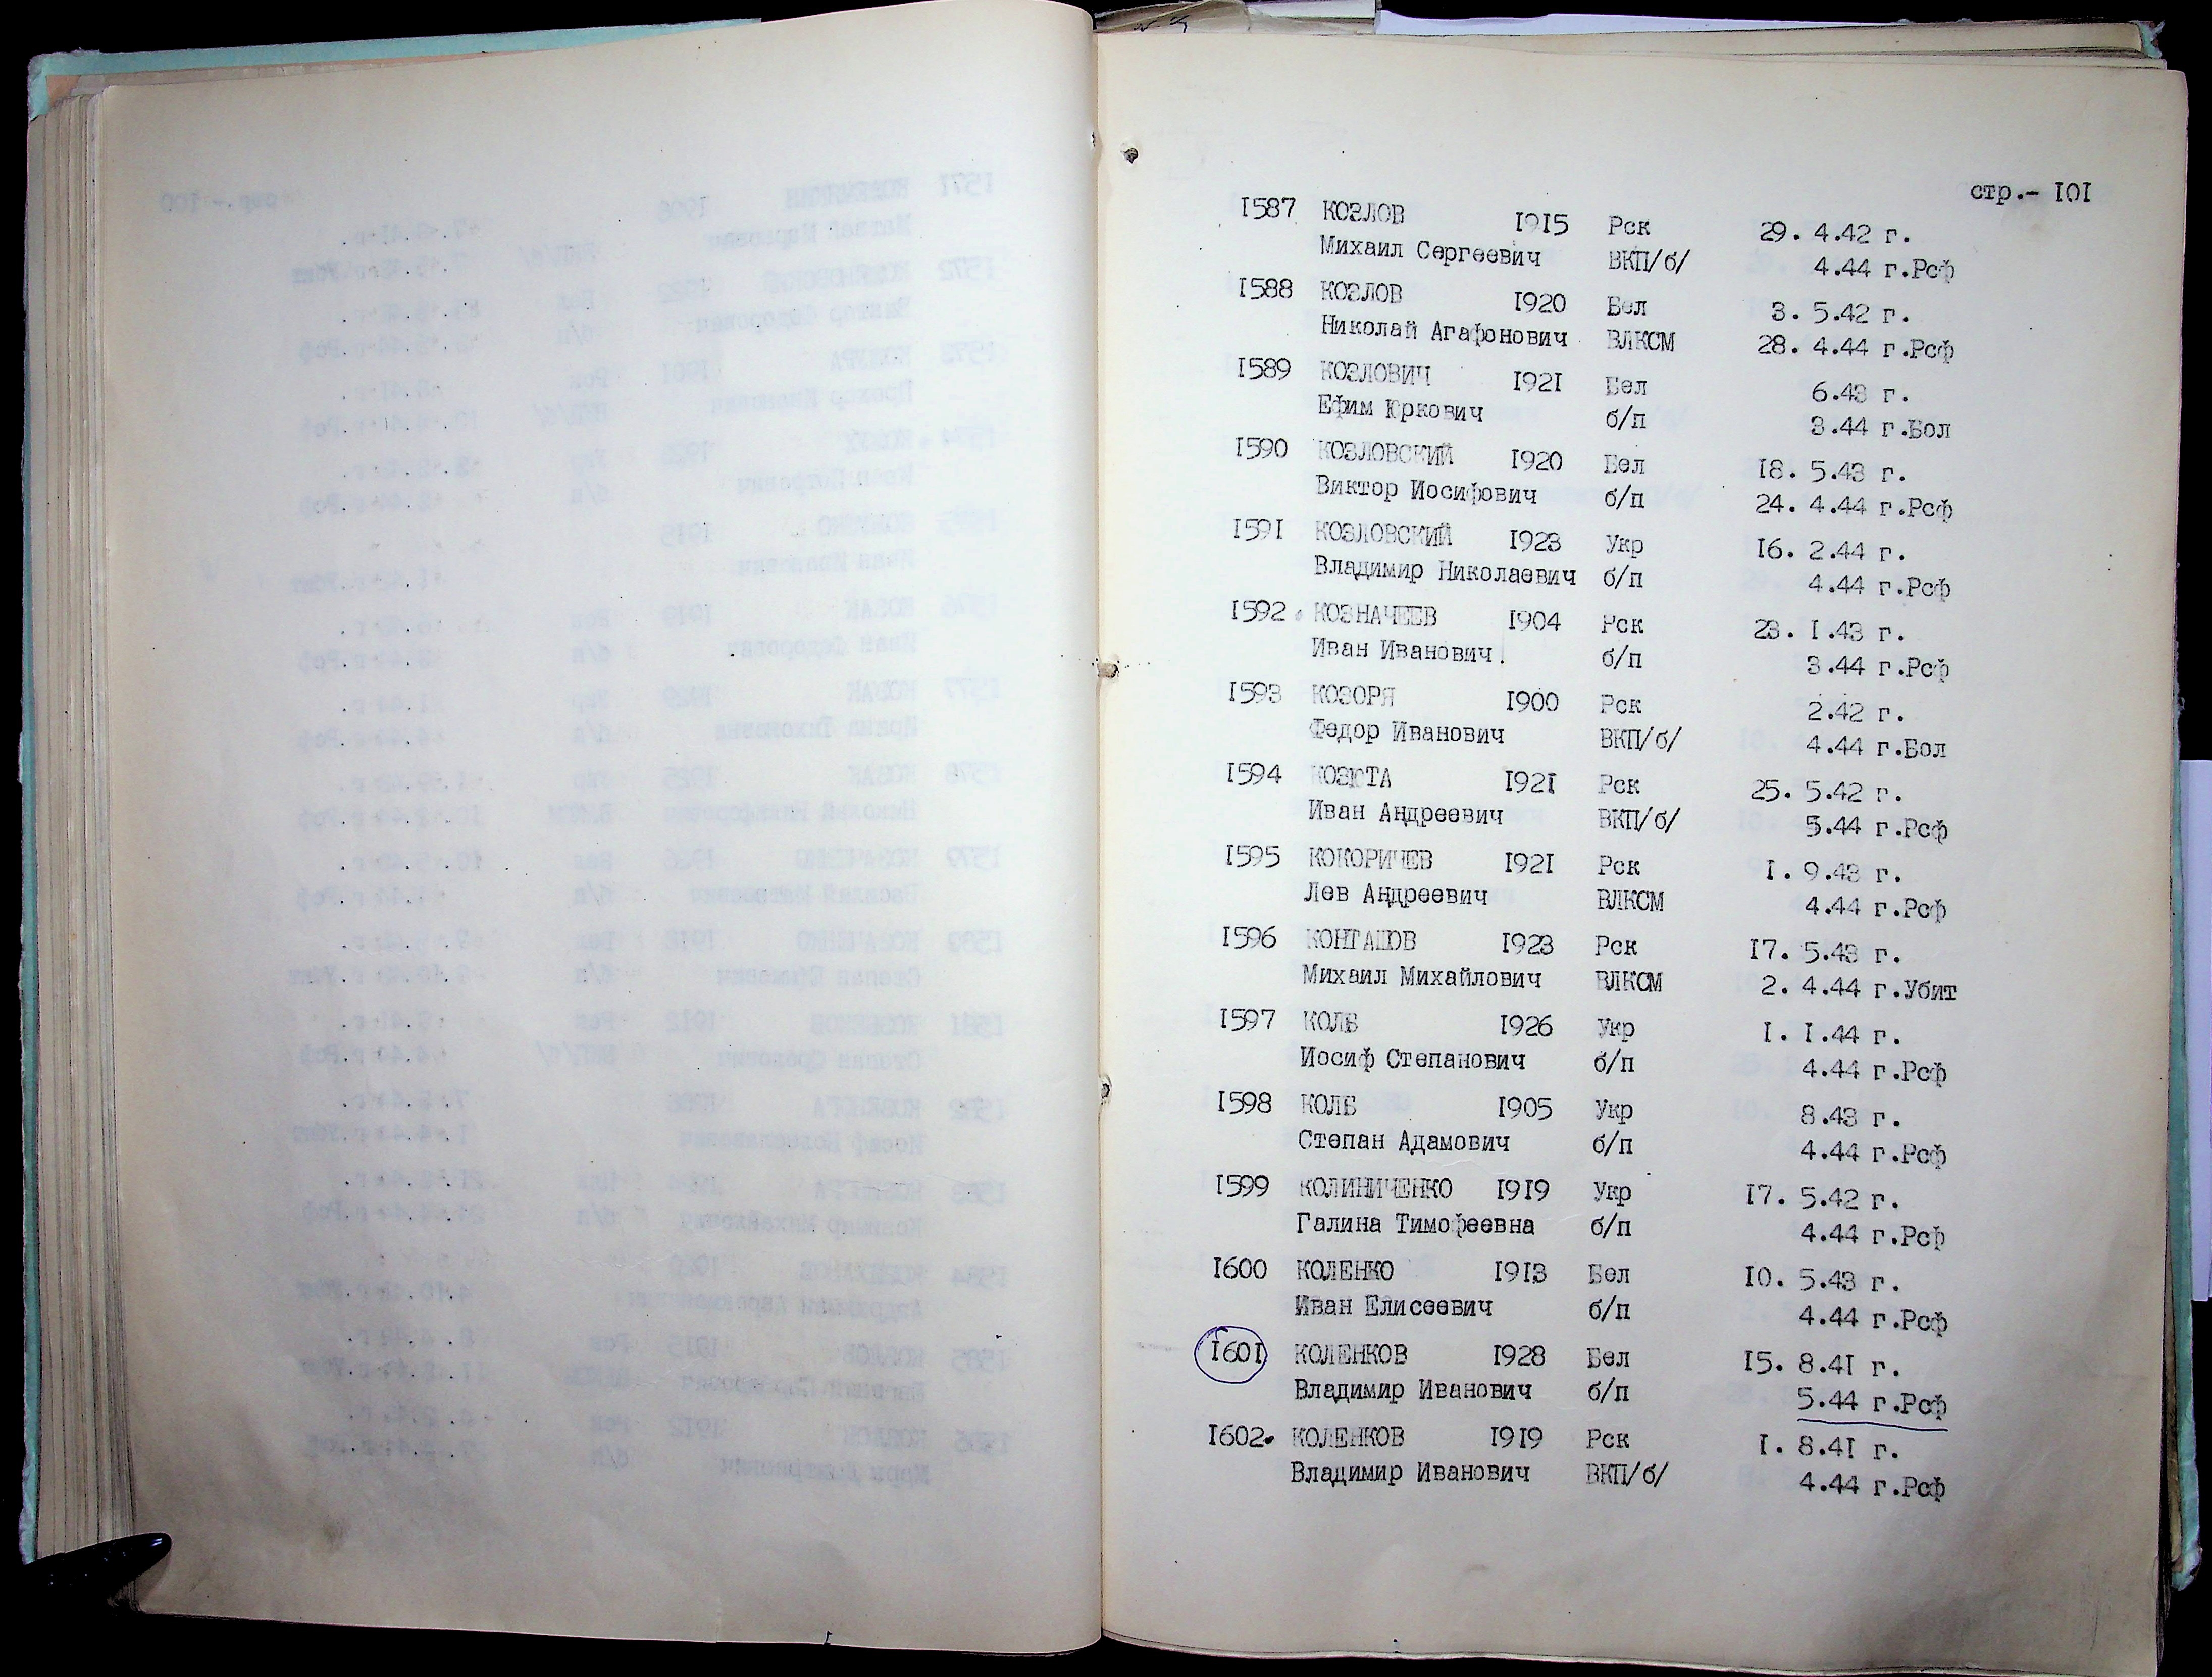 стр.- 101
1587 КОЗЛОВ 1915 Рск 29. 4.42 г.
Михаил Сергеевич ВКП/б/ 4.44 г.Рсф
1588 КОЗЛОВ 1920 Бел 3. 5.42 г.
Николай Агафонович ВЛКСМ 28. 4.44 г.Рсф
1589 КОЗЛОВИЧ 1921 Бел 6.43 г.
Ефим Юркович б/п 3.44 г.Бол
1590 КОЗЛОВСКИЙ 1920 Бел 18. 5.43 г.
Виктор Иосифович б/п 24. 4.44 г.Рсф
1591 КОЗЛОВСКИЙ 1923 Укр 16. 2.44 г.
Владимир Николаевич б/п 4.44 г.Рсф
1592. КОЗНАЧЕЕВ 1904 Рск 23. 1.43 г.
Иван Иванович б/п 3.44 г.Рсф
1593 КОЗОРЯ 1900 Рск 2.42 г.
Федор Иванович ВКП/б/ 4.44 г.Бол
1594 КОЗЮТА 1921 Рск 25. 5.42 г.
Иван Андреевич ВКП/б/ 5.44 г.Рсф
1595 КОКОРИЧЕВ 1921 Рск 1. 9.43 г.
Лев Андреевич ВЛКСМ 4.44 г.Рсф
1596 1923 Рск 17. 5.43 г.
Михаил Михайлович ВЛКСМ 2. 4.44 г.Убит
1597 КОЛБ 1926 Укр 1. 1.44 г.
Иосиф Степанович б/п 4.44 г.Рсф
1598 КОЛБ 1905 Укр 8.43 г.
Степан Адамович б/п 4.44 г.Рсф
1599 КОЛИНИЧЕНКО 1919 Укр 17. 5.42 г.
Галина Тимофеевна б/п 4.44 г.Рсф
1600 КОЛЕНКО 1913 Бел 10. 5.43 г.
Иван Елисеевич б/п 4.44 г.Рсф
1601 КОЛЕНКОВ 1928 Бел 15. 8.41 г.
Владимир Иванович б/п 5.44 г.Рсф
1602. КОЛЕНКОВ 1919 Рск 1. 8.41 г.
Владимир Иванович ВКП/б/ 4.44 г.Рсф